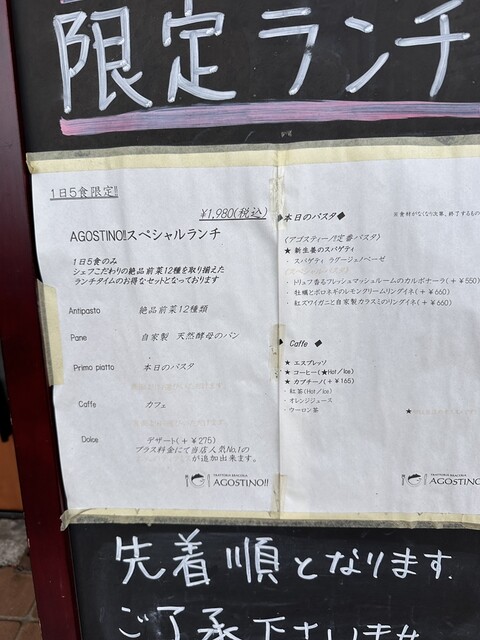 限定ランチ
1日5食限定!!
¥1,980(税込)
AGOSTINO!!スペシャルランチ
1日5食のみ
シェフこだわりの絶品前菜12種を取り揃えた
ランチタイムのお得なセットとなっております
Antipasto 絶品前菜12種類
Pane 自家製 天然酵母のパン
Primo piatto 本日のパスタ
Caffe カフェ
Dolce デザート(+¥275)
プラス料金にて当店人気No.1の
が追加出来ます。
TRATTORIA BRACERIA
AGOSTINO!!
◆本日のパスタ◆
※食材がなくなり次第、終了するもの
(アゴスティーノ!!定番パスタ)
★ 新生姜のスパゲティ
・スパゲティ ラグージェノベーゼ
(スペシャルパスタ)
・トリュフ香るフレッシュマッシュルームのカルボナーラ(+¥550)
・牡蠣とポロネギのレモンクリームリングイネ(+¥660)
・紅ズワイガニと自家製カラスミのリングイネ(+¥660)
◆ Caffe ◆
★ エスプレッソ
★ コーヒー(★Hot/Ice)
★ カプチーノ(+¥165)
・紅茶(Hot/Ice)
・オレンジジュース
・ウーロン茶
TRATTORIA BRACERIA
AGOSTINO
先着順となります.
ご了承下さいませ